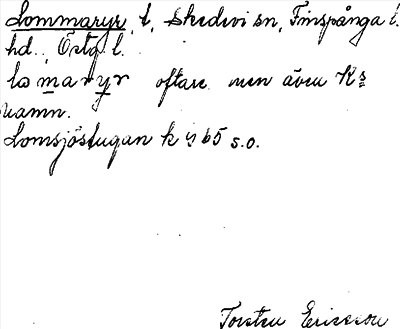 Lommaryr, t, Skedevi sn, Finspånga l.
hd., Östg l.
lomaryr oftare men även Ks
namn.
Lomsjöstugan k 65 s.o.
Torsten Ericsson